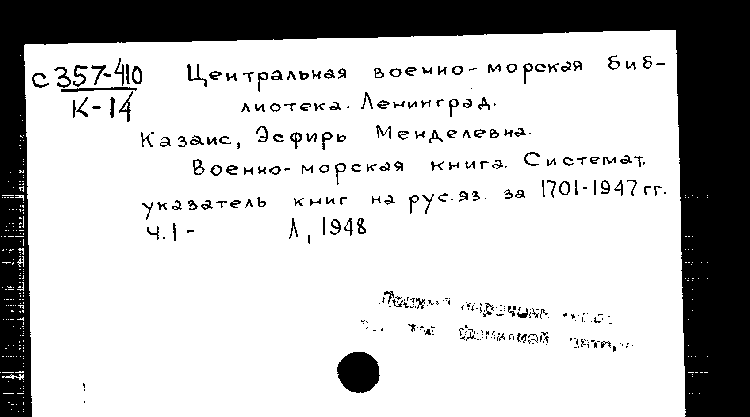 с 357-410
К-14
Центральная военно-морская биб-
лиотека. Ленинград.
Казаис, Эсфирь Менделевна.
Военно-морская книга. Системат.
указатель книг на рус.яз. за 1701-1947 гг.
ч.1- Л, 1948